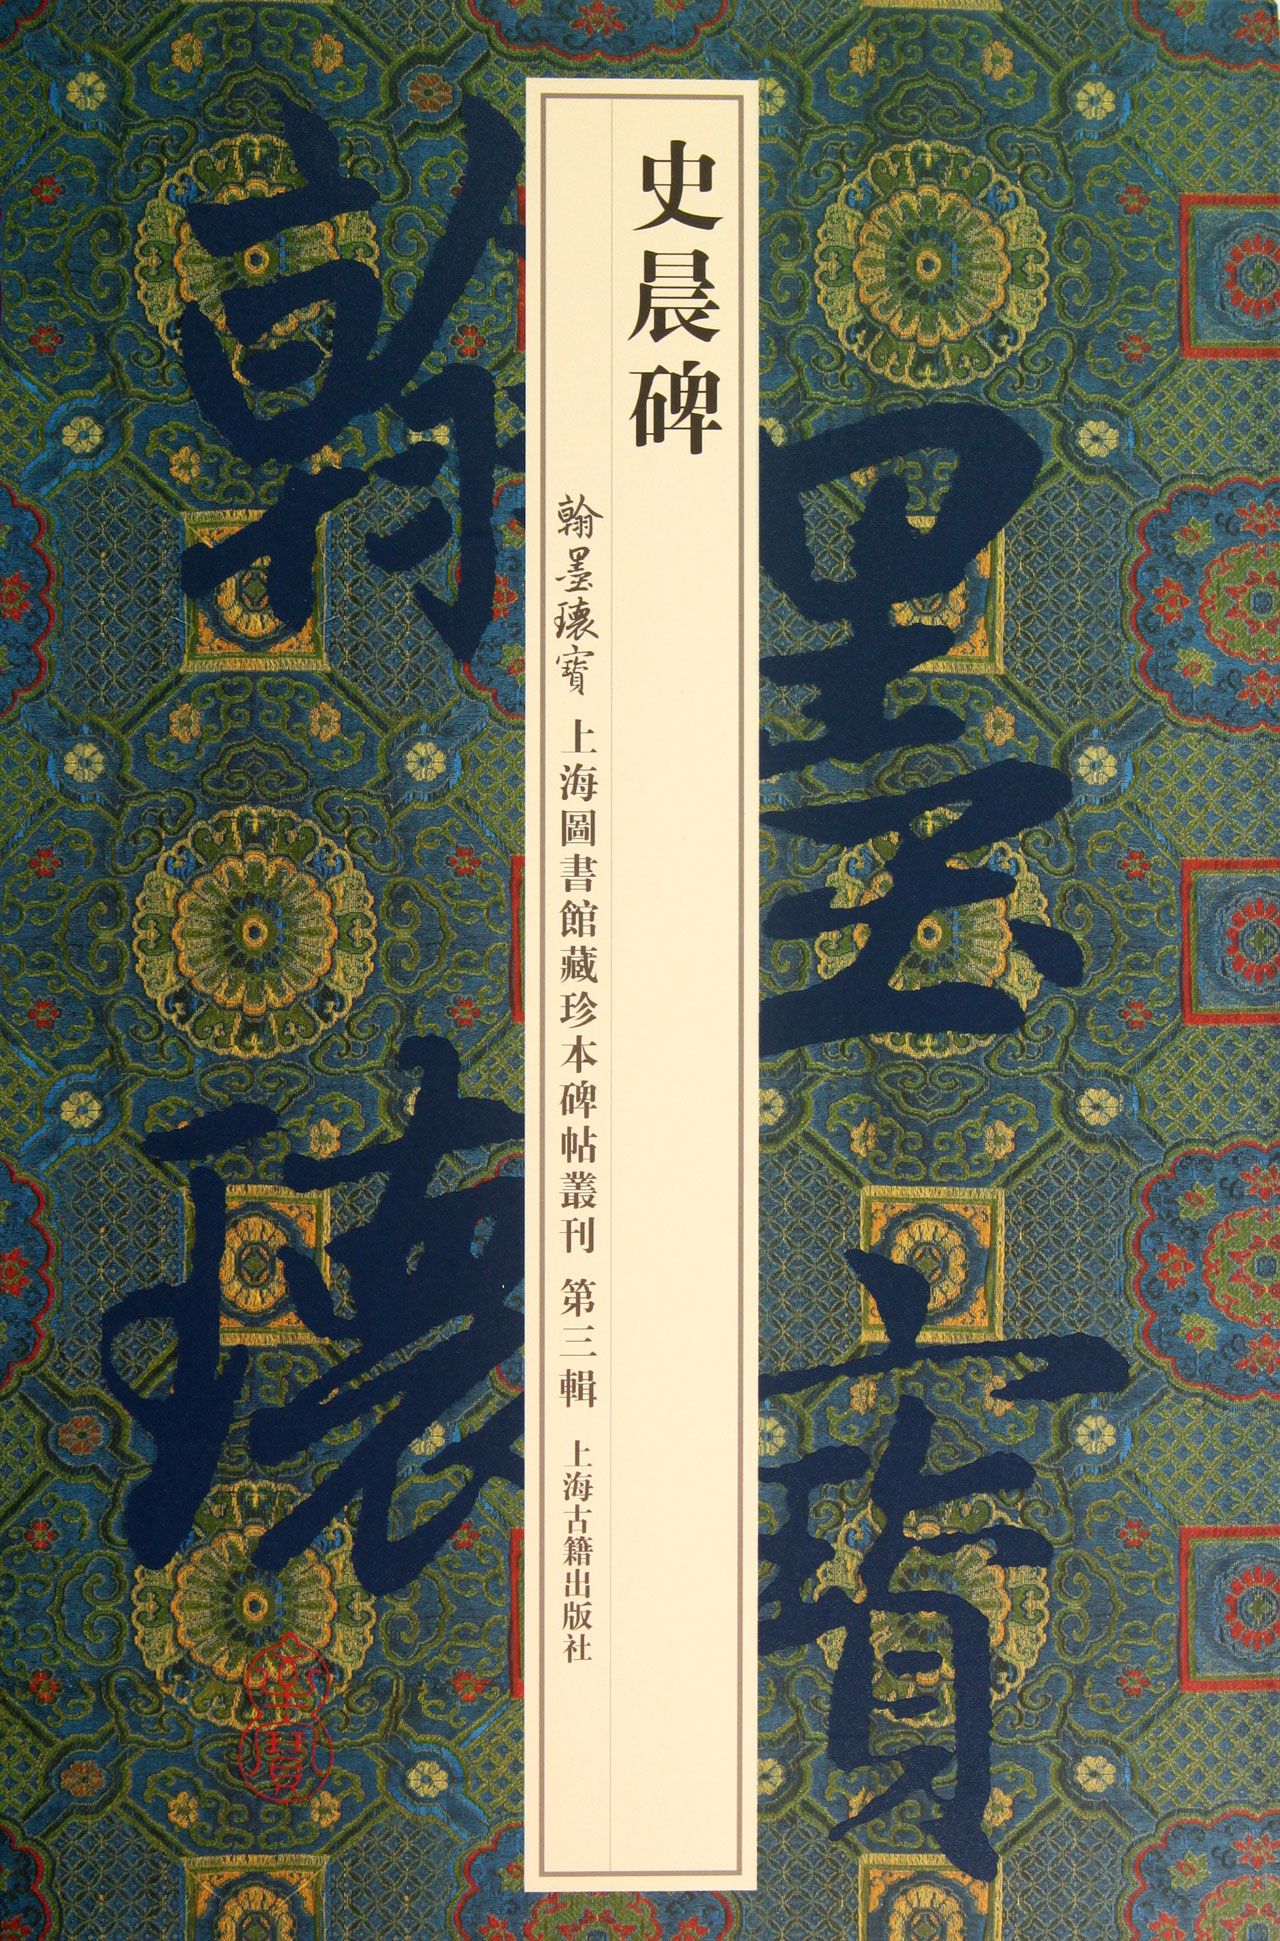 史晨碑
翰墨瓌寶 上海圖書館藏珍本碑帖叢刊 第三輯 上海古籍出版社
翰墨
瓌寶